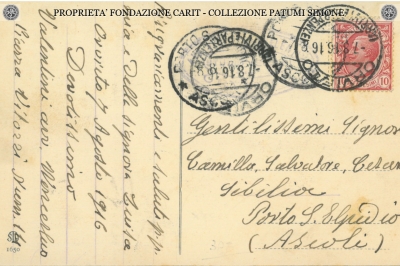 PROPRIETA' FONDAZIONE CARIT - COLLEZIONE PATUMI SIMONE
Ringraziamenti e saluti p.p.
mia e della Signora Giulia
Orvieto 7 Agosto 1916
Devotissimo
Valentini avv. Winceslao
Piazza Vitozzi Num. 14
PORTO S.
ASC
7.8.16
ORVIETO
7.8.16
10
Gentilissimi Signori
Camillo, Salvatore, Cesare
Sibilia
Porto S. Elpidio
(Ascoli)